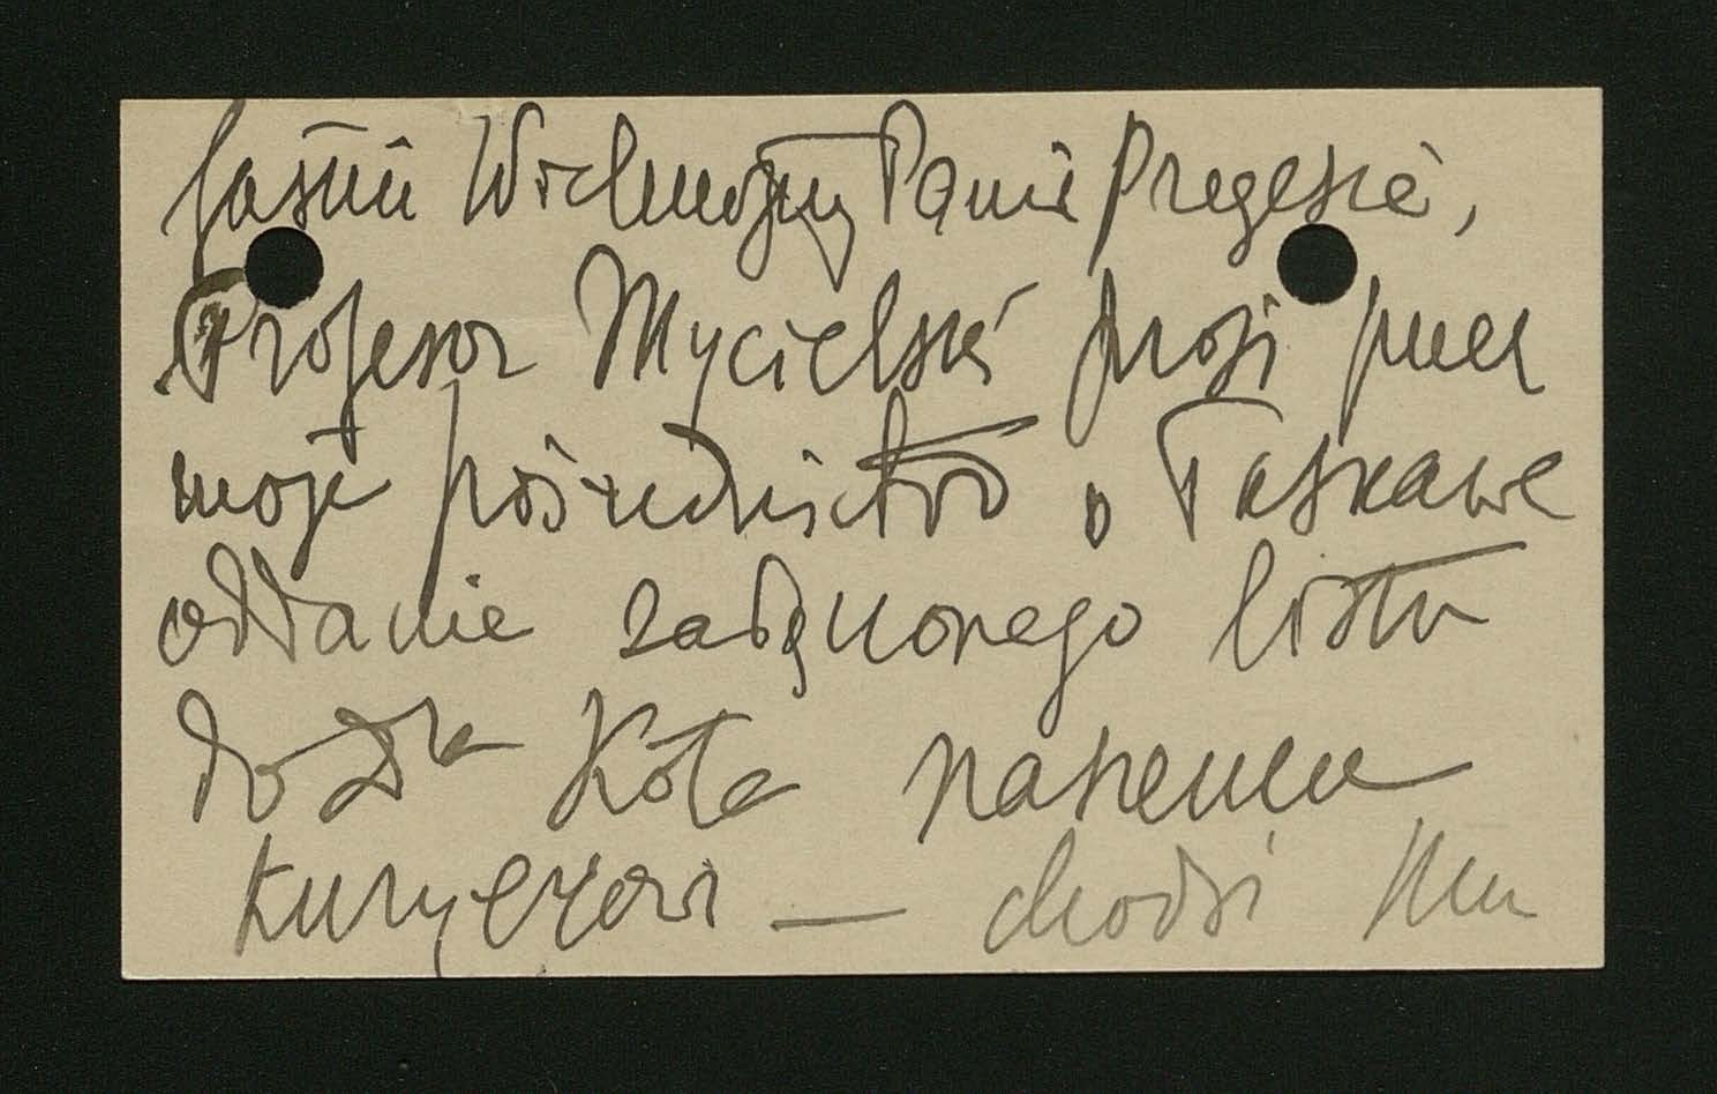 Jaśnie Wielmożny Panie Prezesie,
Profesor Mycielski prosi przez
moje pośrednictwo o łaskawe
oddanie załączonego listu
do Dra Kota naszemu
kuryerowi — chodzi Mu